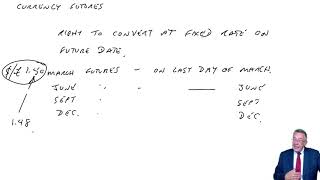 CURRENCY FUTURES
RIGHT TO CONVERT AT FIXED RATE ON
FUTURE DATE.
$/£ 1.50 MARCH FUTURES - ON LAST DAY OF MARCH.
JUNE " — JUNE
SEPT " SEPT
DEC. " DEC.
1.48